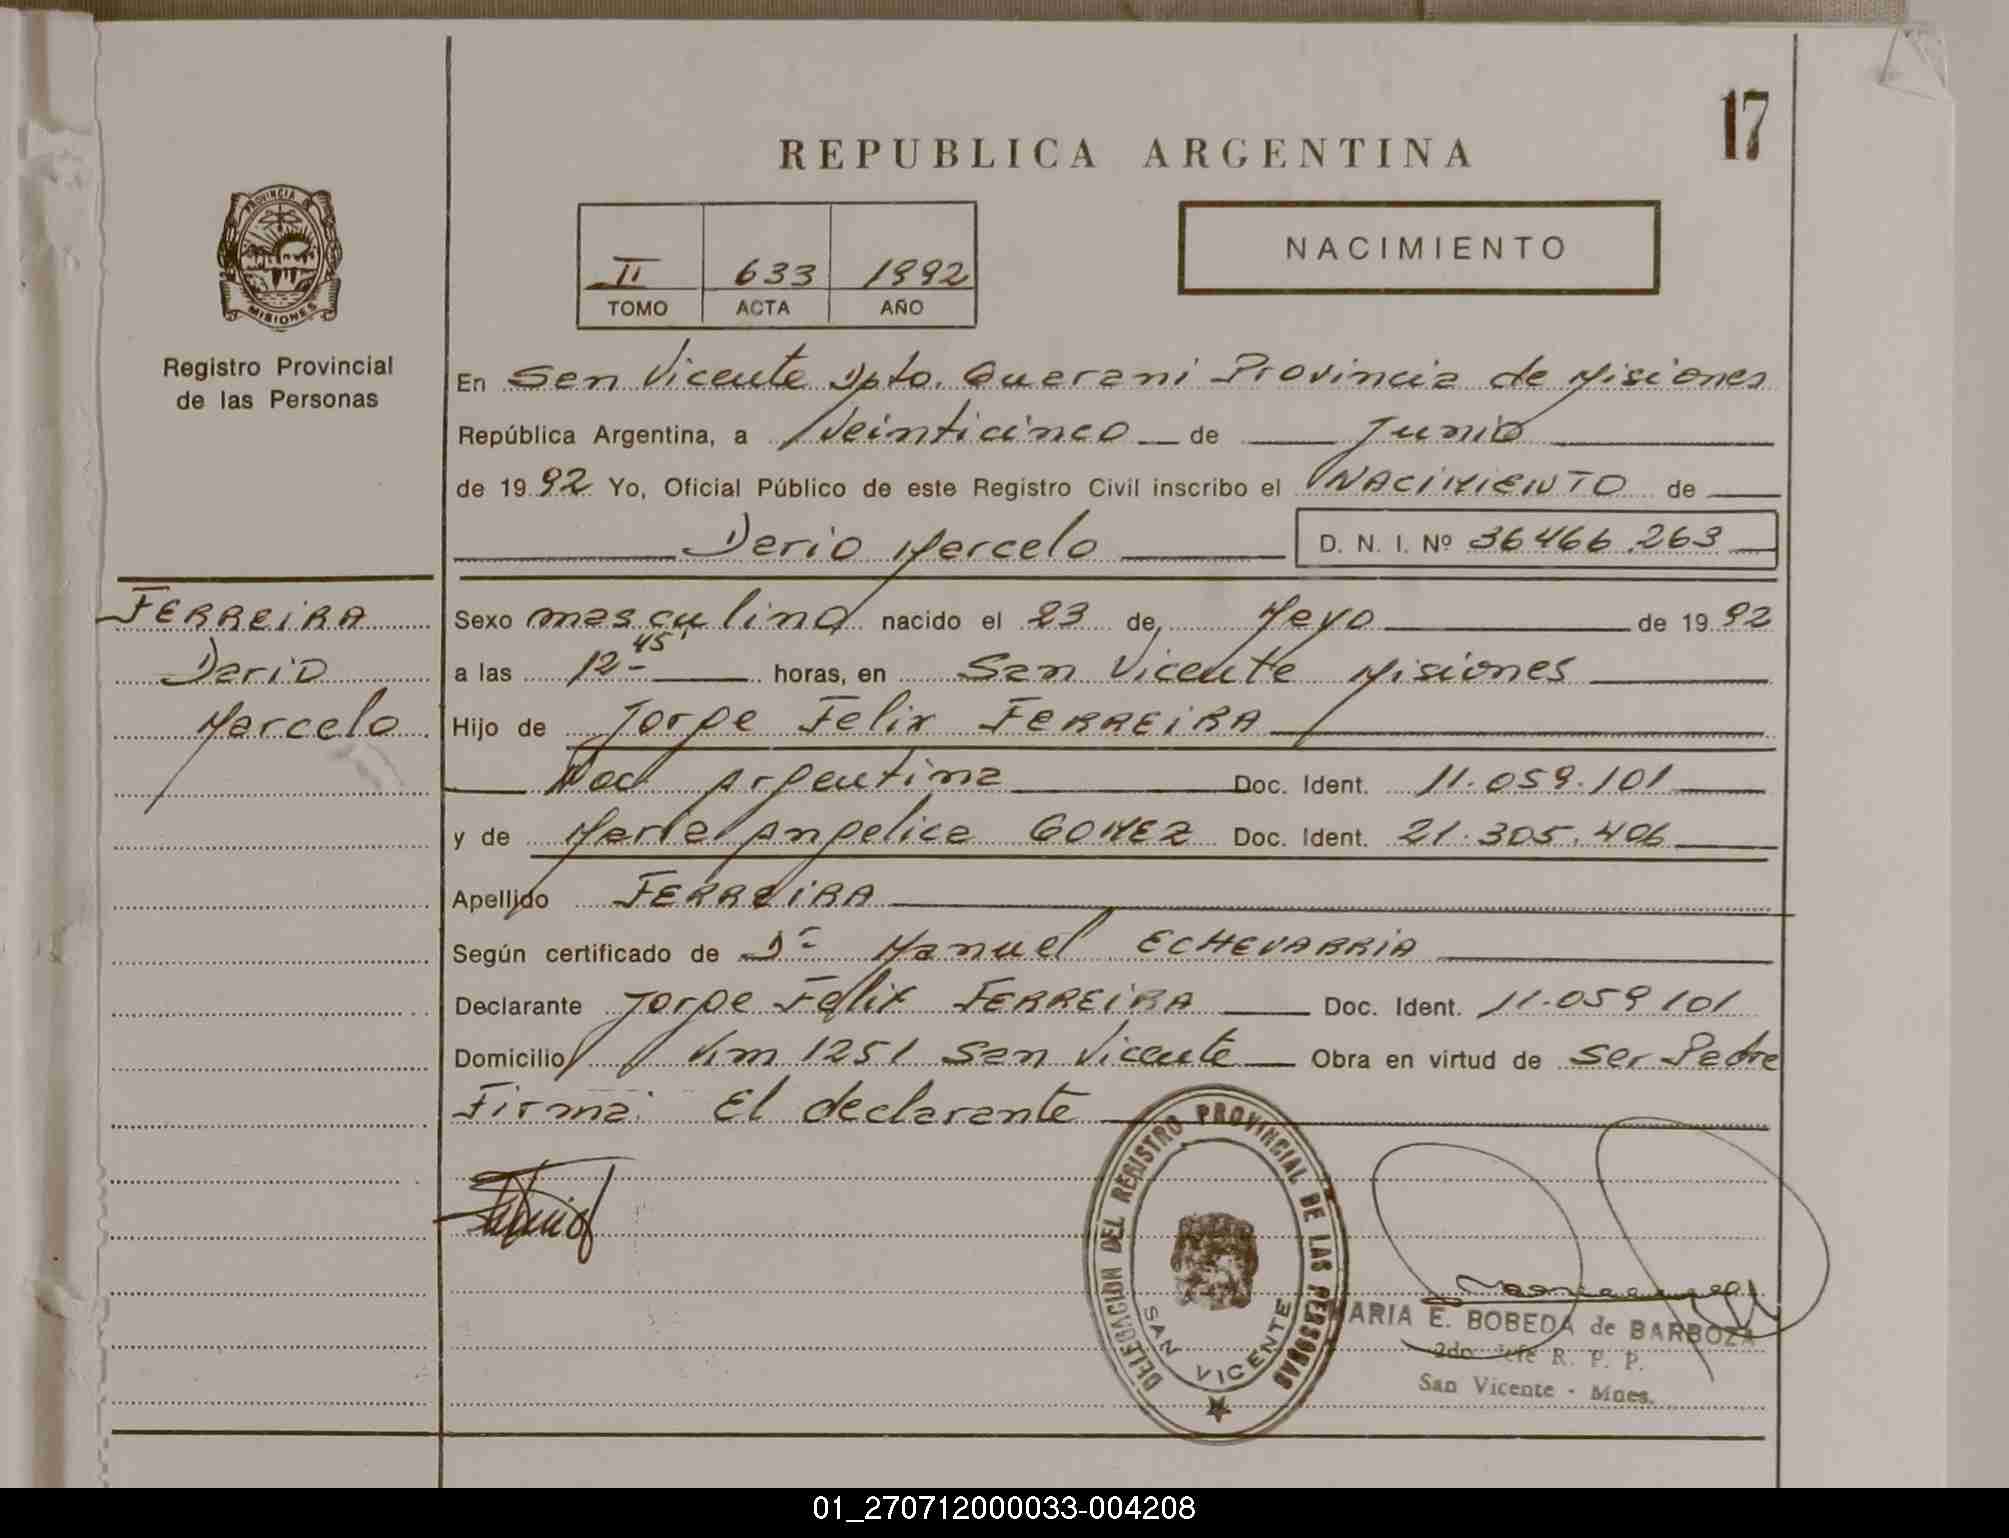 17
REPUBLICA ARGENTINA
PROVINCIA DE
MISIONES
Registro Provincial
de las Personas
II 633 1992
TOMO ACTA AÑO
NACIMIENTO
En San Vicente Dpto. Guarani Provincia de Misiones
República Argentina, a Veinticinco de Junio
de 1992 Yo, Oficial Público de este Registro Civil inscribo el NACIMIENTO de
Dario Marcelo D. N. I. Nº 36466.263
FERREIRA
Dario
Marcelo
Sexo masculino nacido el 23 de Mayo de 1992
a las 12-45 horas, en San Vicente Misiones
Hijo de Jorge Felix FERREIRA
Nac Argentina Doc. Ident. 11.059.101
y de Maria Angelica GOMEZ Doc. Ident. 21.305.406
Apellido FERREIRA
Según certificado de Dr Manuel ECHEVARRIA
Declarante Jorge Felix FERREIRA Doc. Ident. 11.059101
Domicilio Km 1251 San Vicente Obra en virtud de ser Padre
Firma: El declarante
DELEGACION DEL REGISTRO PROVINCIAL DE LAS PERSONAS
SAN VICENTE
MARIA E. BOBEDA de BARBOZA
2do. Jefe R. P. P.
San Vicente - Mnes.
01_270712000033-004208